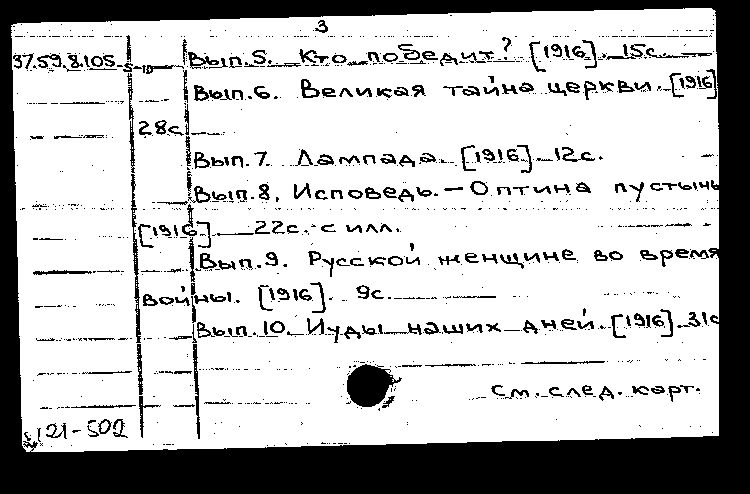 3
37.59.8.105 Вып.5. Кто победит? [1916]. 15с.
5-10
Вып.6. Великая тайна церкви. [1916]
28с
Вып.7 Лампада. [1916] 12с.
Вып.8. Исповедь. – Оптина пустынь
[1916]. 22с. с илл.
Вып.9. Русской женщине во время
войны. [1916]. 9с.
Вып.10. Иуды наших дней. [1916] 31с
см. след. карт.
121-502